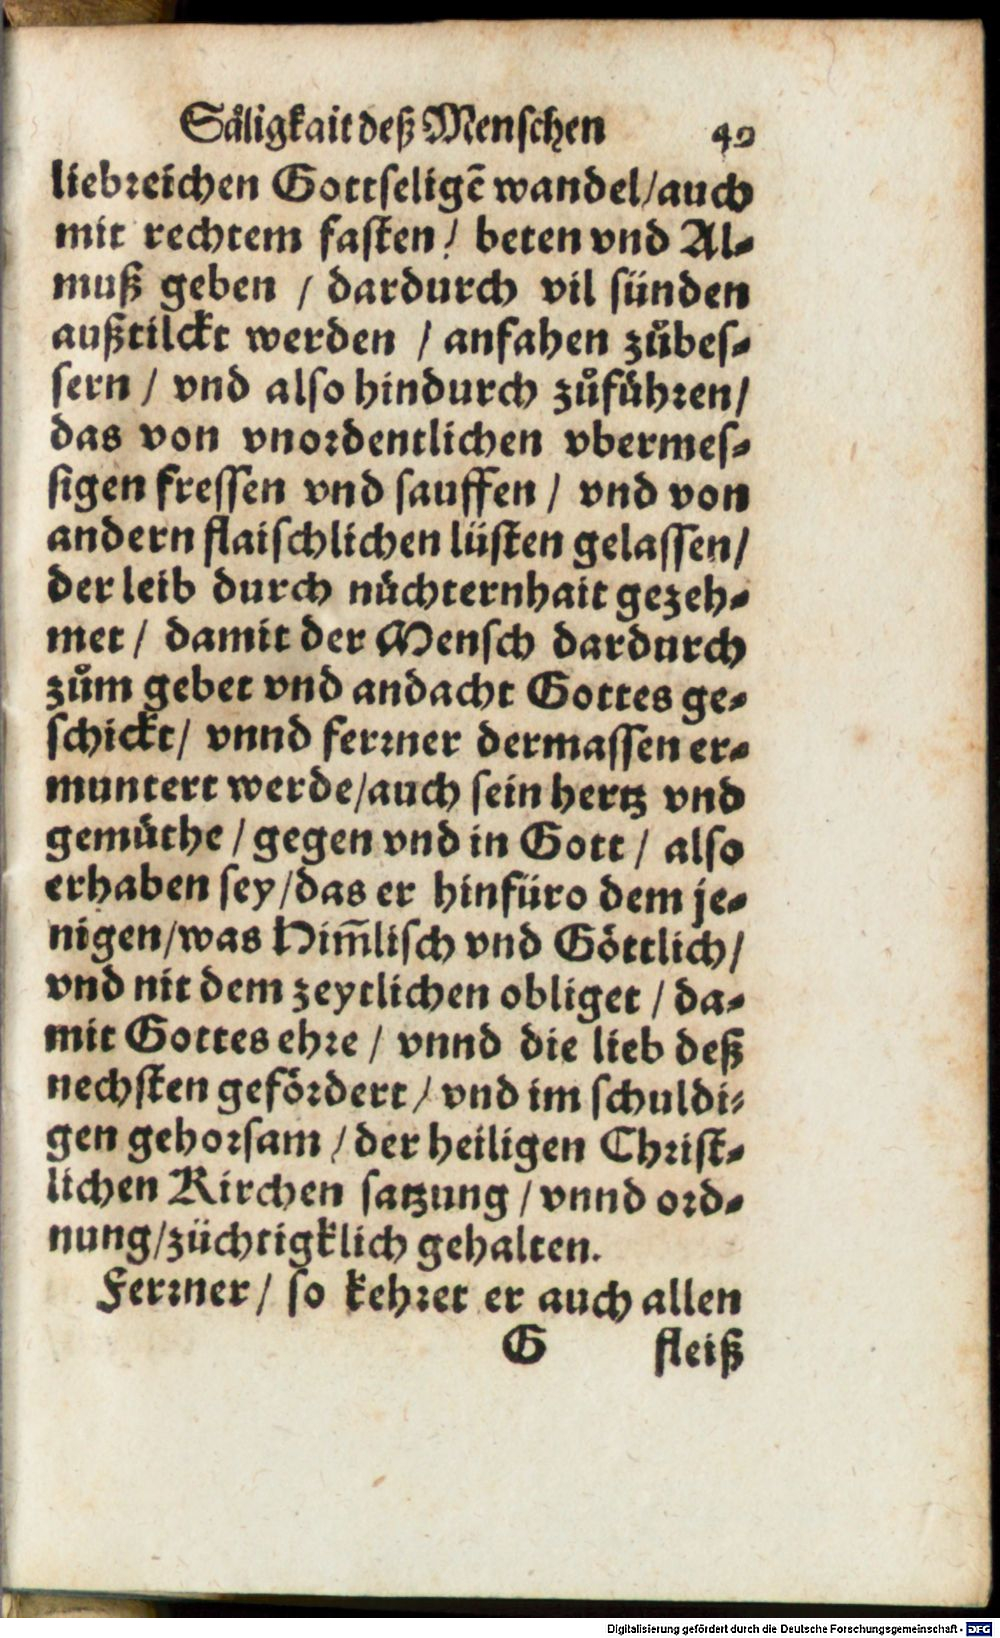 Säligkait deß Menschen 49
liebreichen Gottseligē wandel/auch
mit rechtem fasten/ beten vnd Al-
muß geben / dardurch vil sünden
außtilckt werden / anfahen zůbes-
sern / vnd also hindurch zůführen/
das von vnordentlichen vbermes-
sigen fressen vnd sauffen / vnd von
andern flaischlichen lüsten gelassen/
der leib durch nüchternhait gezeh-
met / damit der Mensch dardurch
zům gebet vnd andacht Gottes ge-
schickt/ vnnd ferrner dermassen er-
muntert werde/auch sein hertz vnd
gemüthe / gegen vnd in Gott / also
erhaben sey/das er hinfüro dem je-
nigen/was Him̄lisch vnd Göttlich/
vnd nit dem zeytlichen obliget / da-
mit Gottes ehre / vnnd die lieb deß
nechsten gefördert / vnd im schuldi-
gen gehorsam / der heiligen Christ-
lichen Kirchen satzung / vnnd ord-
nung/züchtigklich gehalten.
Ferrner/ so kehret er auch allen
G fleiß
Digitalisierung gefördert durch die Deutsche Forschungsgemeinschaft - DFG